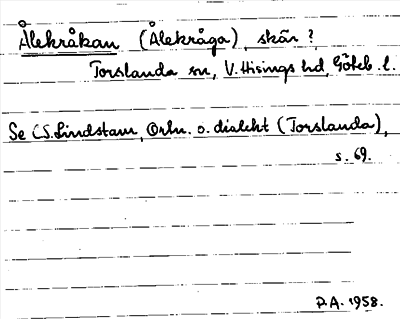 Ålekråkan (Ålekråga), skär?
Torslanda sn, V. Hisings hd, Göteb. l.
Se C.S. Lindstam, Ortn. o. dialekt (Torslanda),
s. 69.
P.A. 1958.